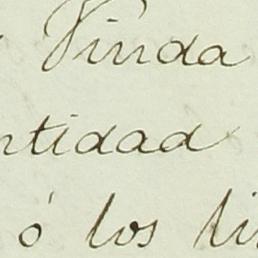 Viuda
ntidad
ó los